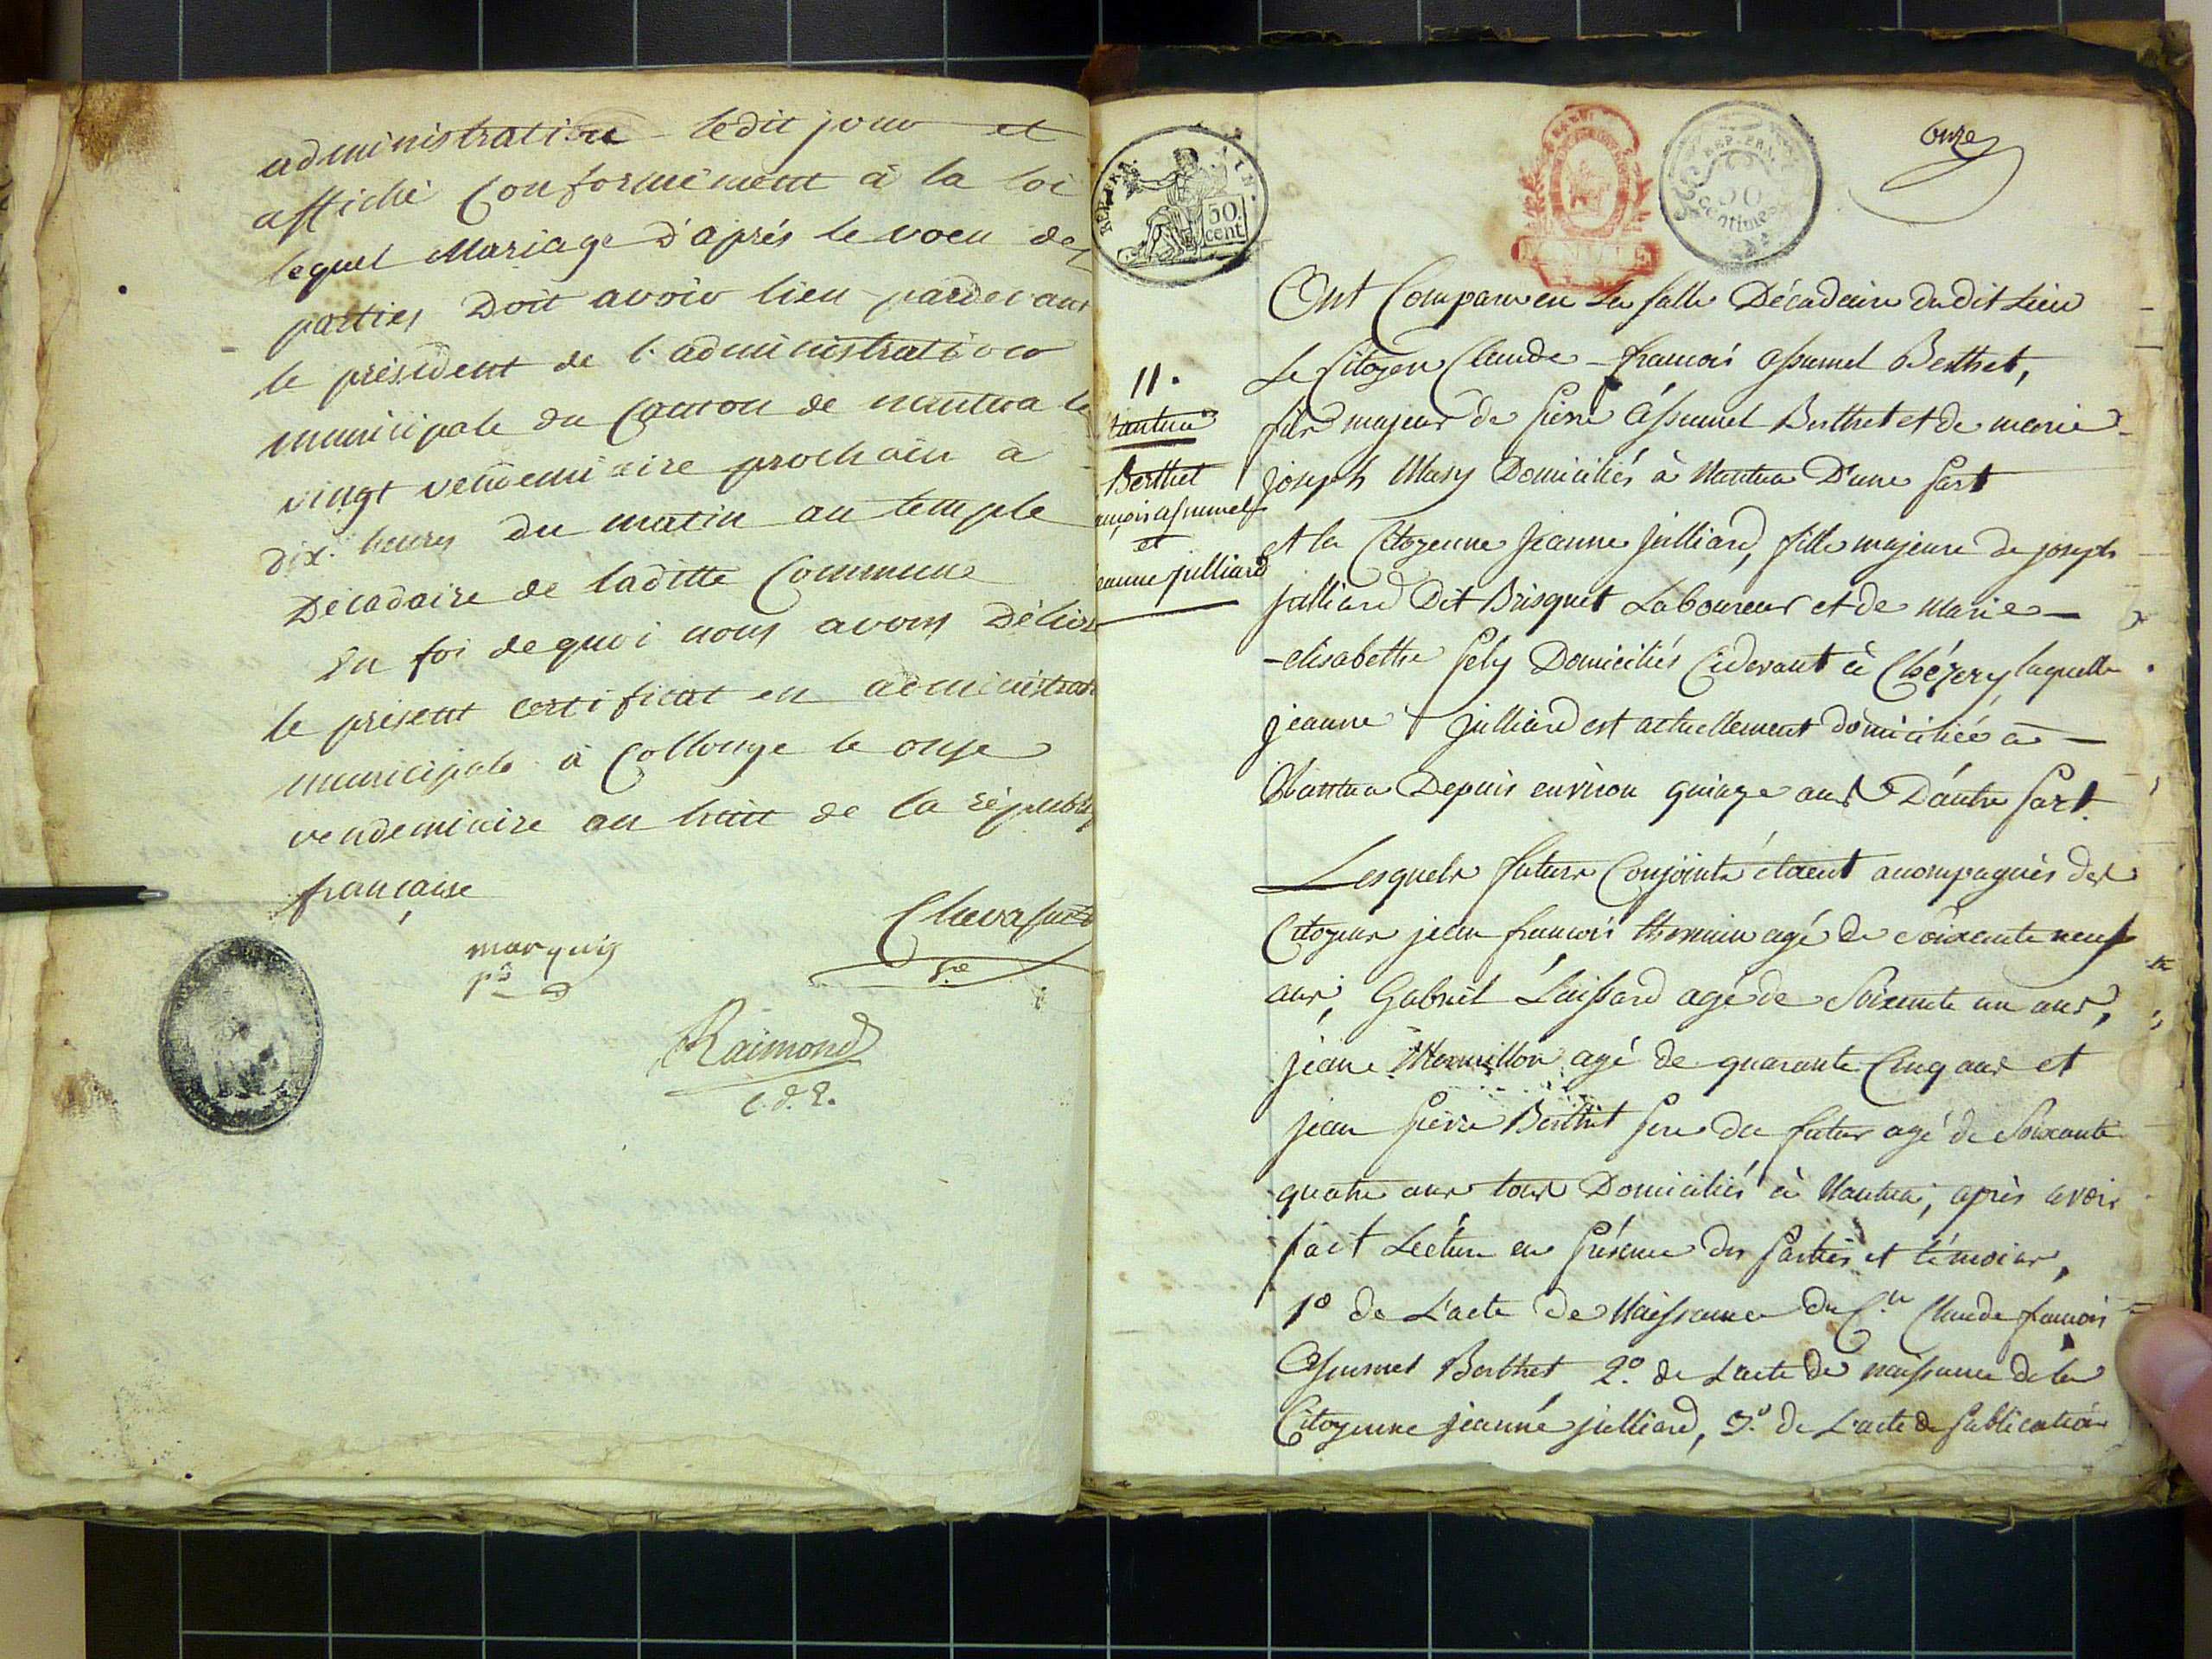 administration ledit jour et
affiché Conformément à la loi
lequel Mariage d'après le voeu des
parties Doit avoir lieu pardevant
le président de l'administration
municipale du Canton de nantua le
vingt vendemiaire prochain à
dix heures du matin au temple
Décadaire de laditte Commune
En foi de quoi nous avons Déliv
le présent certificat en administrat
municipale à Collonge le onze
vendemiaire an huit de la républiq
française
marquis
pt
Raimond
c. d. E.
REP. FRA.
50.
cent
REP. FRA.
50
centimes
onze
11.
Nantua
Berthet
ançois assumel
et
eanne julliard
Ont Comparu en La salle Décadaire du dit Lieu
Le Citoyen Claude-francois Assumel Berthet,
fils majeur de Pierre Assumel Berthet et de marie-
joseph Mary Domiciliés à Nantua D'une Part
et la Citoyenne Jeanne Julliard, fille majeure de joseph
julliard Dit Brisquet Laboureur et de Marie-
-elisabethe Domiciliés Cidevant à Chézery laquelle
jeanne Julliard est actuellement domiciliée à -
Nantua Depuis environ quinze ans D'autre Part.
Lesquels futurs Conjoints étoient acompagnés des
Citoyens jean francois agé de Soixante neuf
ans, Gabriel agé de Soixante un ans,
jean agé de quarante Cinq ans et
jean Pierre Berthet Pere du futur agé de Soixante
quatre ans tous Domiciliés à Nantua; après avoir
fait Lecture en Présence des Parties et témoins,
1º de L'acte de Naissance du C.en Claude francois
Assumel Berthet 2º. de L'acte de naissance de la
Citoyenne jeanne julliard, 3.º de L'acte de Publication